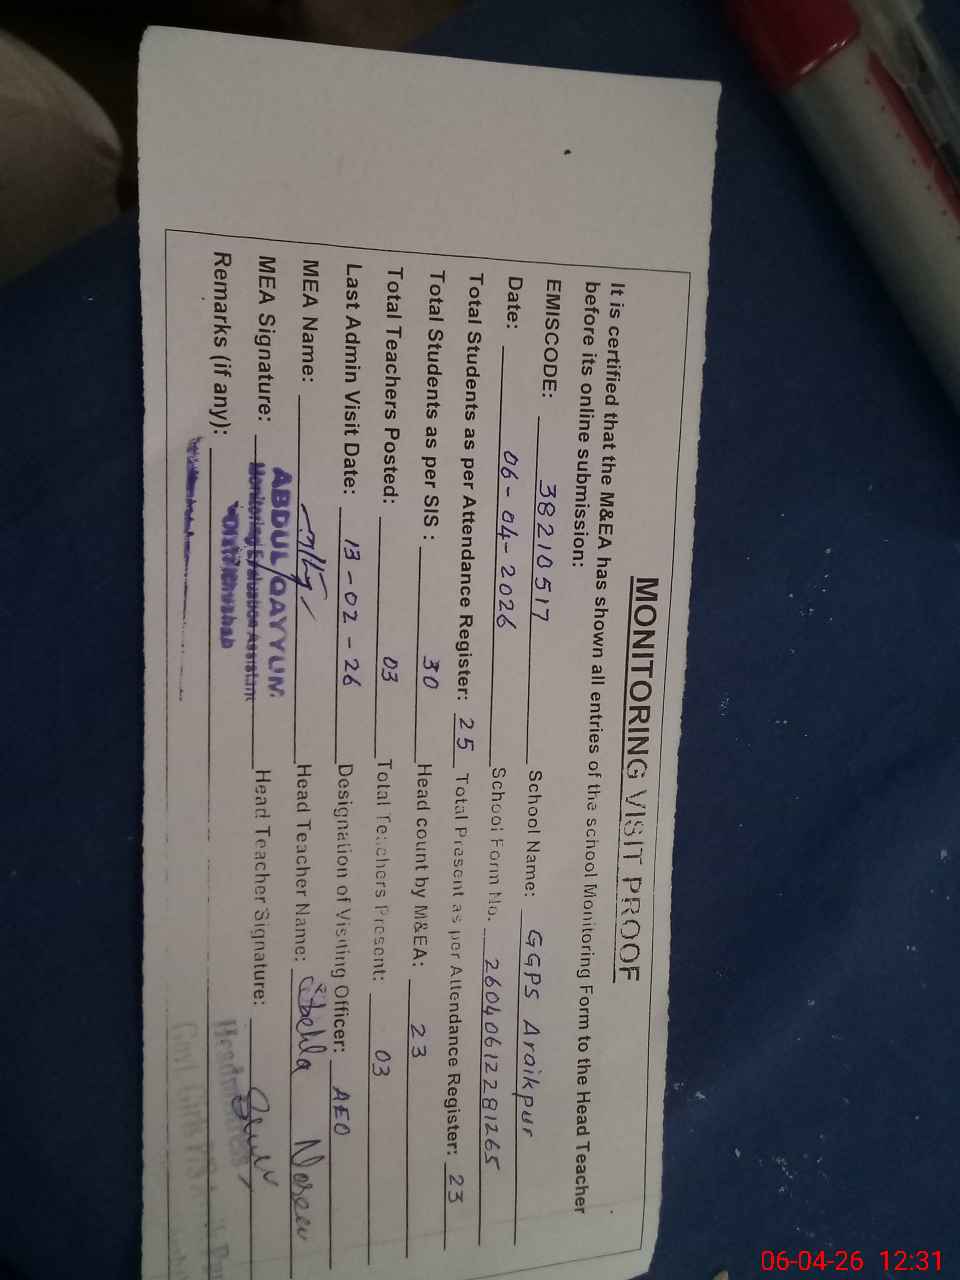 MONITORING VISIT PROOF
It is certified that the M&EA has shown all entries of the school Monitoring Form to the Head Teacher
before its online submission:
EMISCODE: 38210517 School Name: GGPS Araikpur
Date: 06-04-2026 School Form No. 2604061228 1265
Total Students as per Attendance Register: 25 Total Present as per Attendance Register: 23
Total Students as per SIS : 30 Head count by M&EA: 23
Total Teachers Posted: 03 Total Teachers Present: 03
Last Admin Visit Date: 13-02-26 Designation of Visiting Officer: AEO
MEA Name: Head Teacher Name:
MEA Signature: ABDUL QAYYUM Head Teacher Signature:
Monitoring Evaluation Assistant
Remarks (if any): Distt Khushab
Govt. Girls
06-04-26 12:31